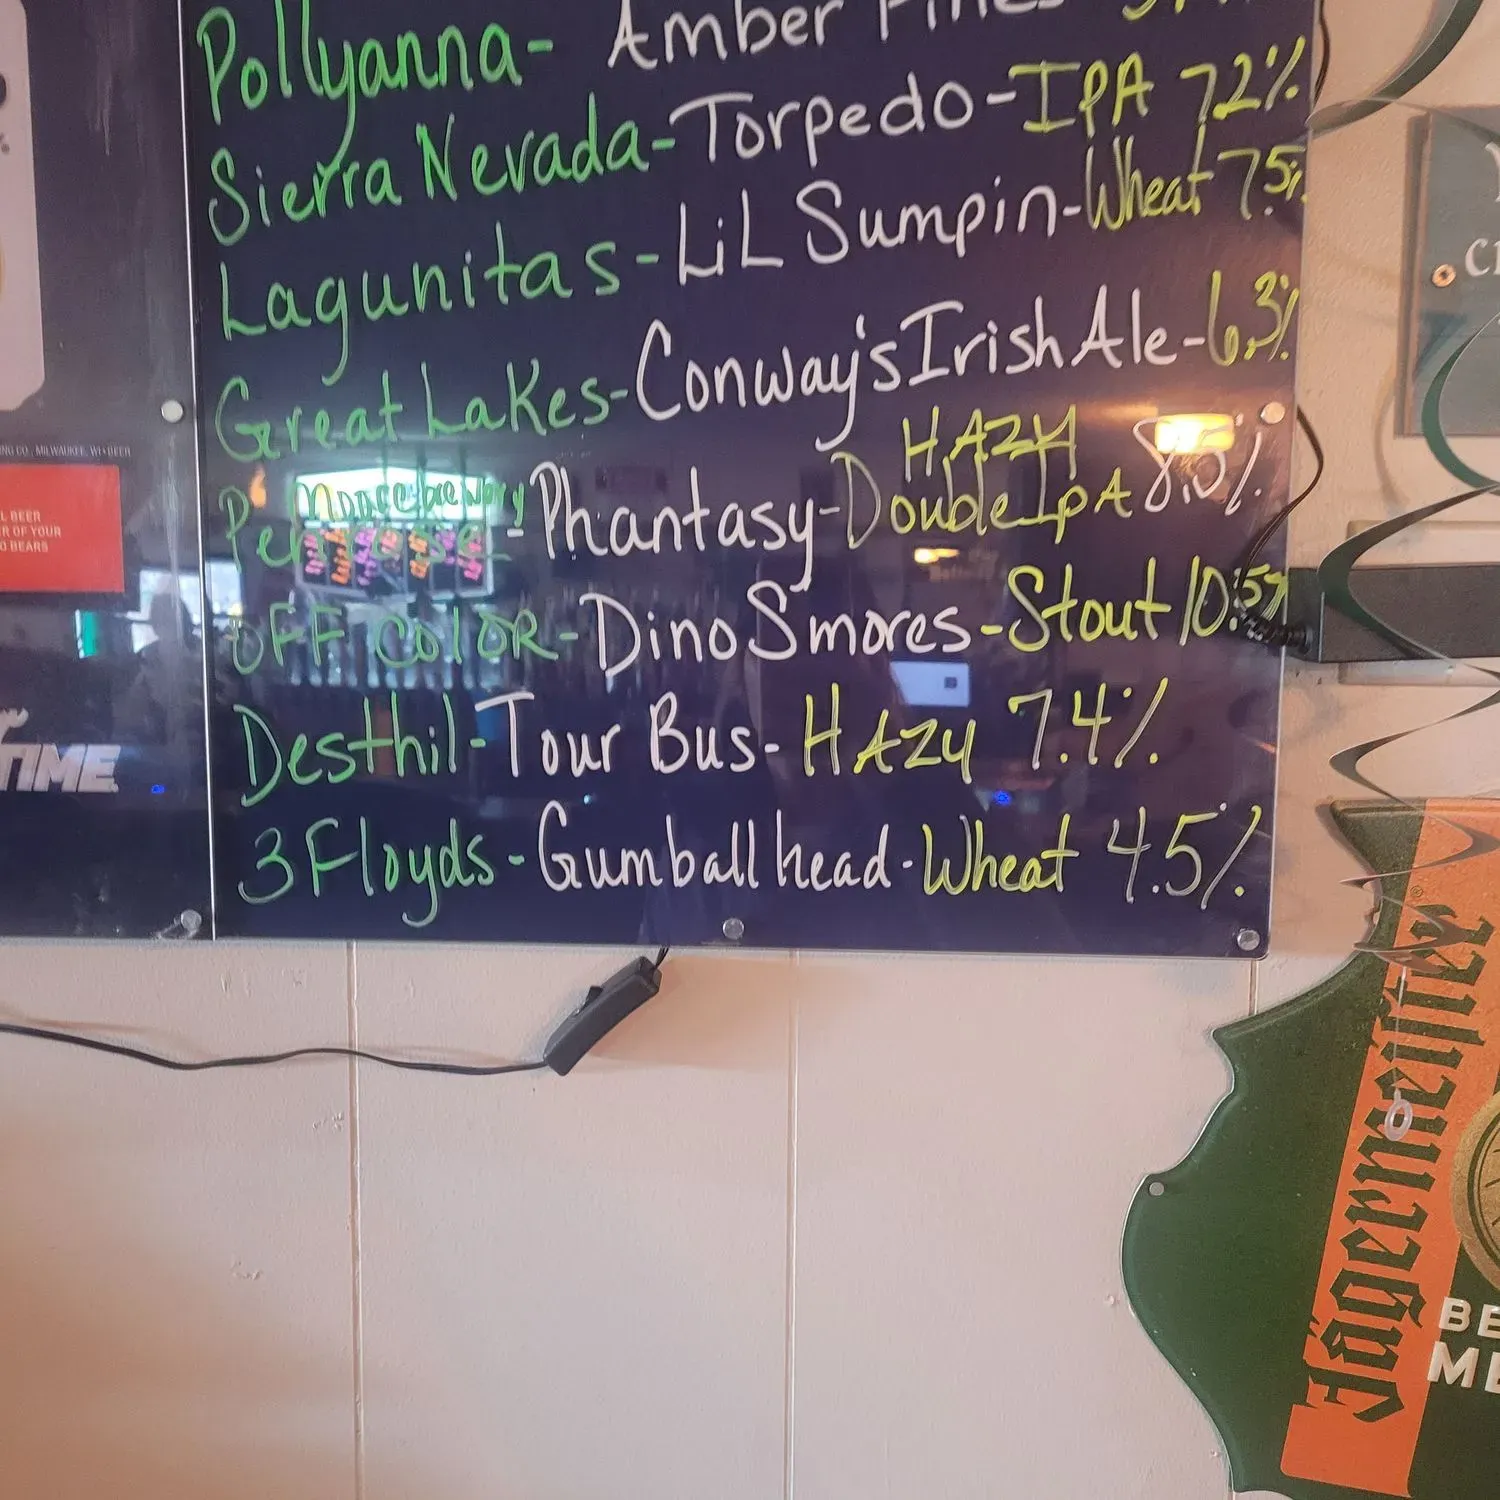 Pollyanna- Amber
Sierra Nevada-Torpedo-IPA 7.2%
Lagunitas-LiL Sumpin-Wheat 7.5%
Great Lakes-Conway's Irish Ale-6.3%
HAZY
-Phantasy-Double IpA 8.5%
OFF COLOR-Dino Smores-Stout 10.5%
Desthil-Tour Bus-HAZY 7.4%
3 Floyds-Gumball head-Wheat 4.5%
CO., MILWAUKEE, WI•BEER
BEER
OF YOUR
BEARS
TIME.
Jägermeister